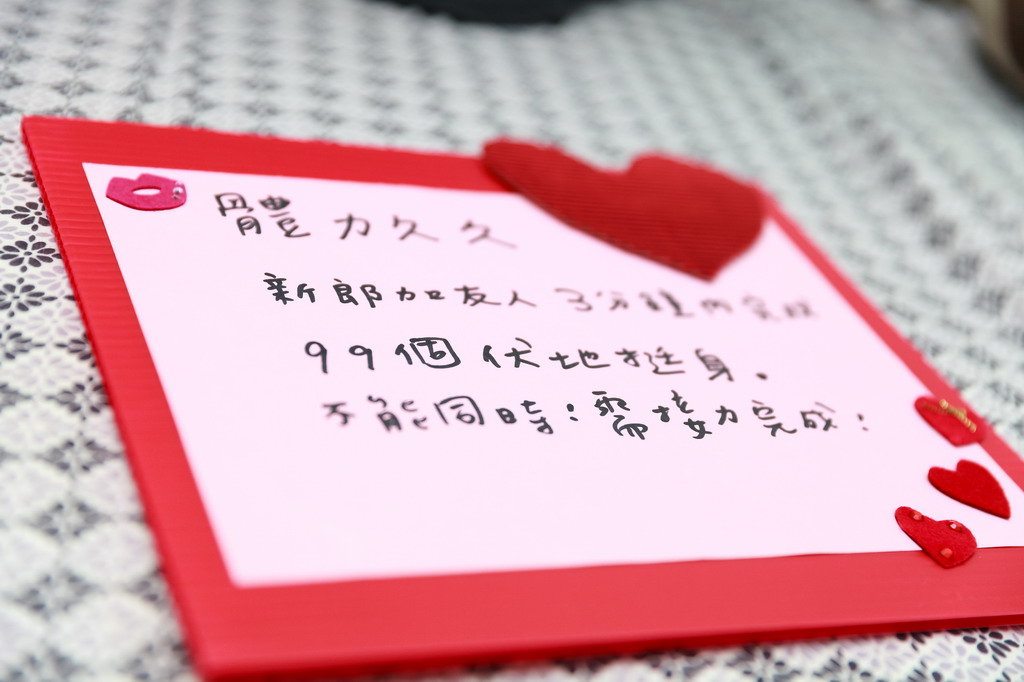 體力久久
新郎加友人3分鐘內完成
99個伏地挺身.
不能同時!需接力完成!